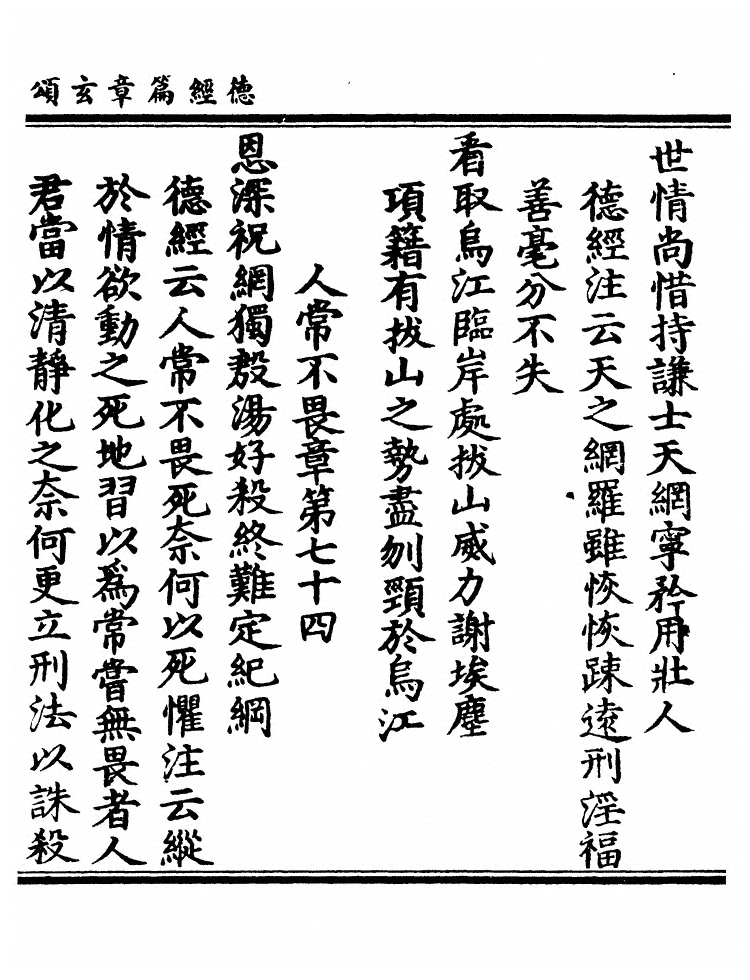 德經篇章玄頌
世情尚惜持謙士天網寧矜用壯人
德經注云天之網羅雖恢恢踈遠刑淫福
善毫分不失
看取烏江臨岸處拔山威力謝埃塵
項籍有拔山之勢盡刎頸於烏江
人常不畏章第七十四
恩深祝網獨殷湯好殺終難定紀綱
德經云人常不畏死奈何以死懼注云縱
於情欲動之死地習以爲常嘗無畏者人
君當以清靜化之奈何更立刑法以誅殺